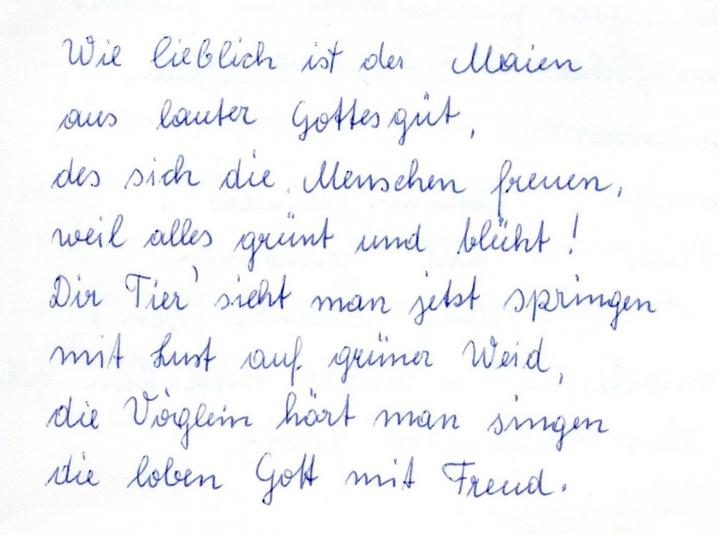 Wie lieblich ist der Maien
aus lauter Gottesgüt,
des sich die Menschen freuen,
weil alles grünt und blüht!
Dir Tier' sieht man jetzt springen
mit Lust auf grüner Weid,
die Vöglein hört man singen
die loben Gott mit Freud.